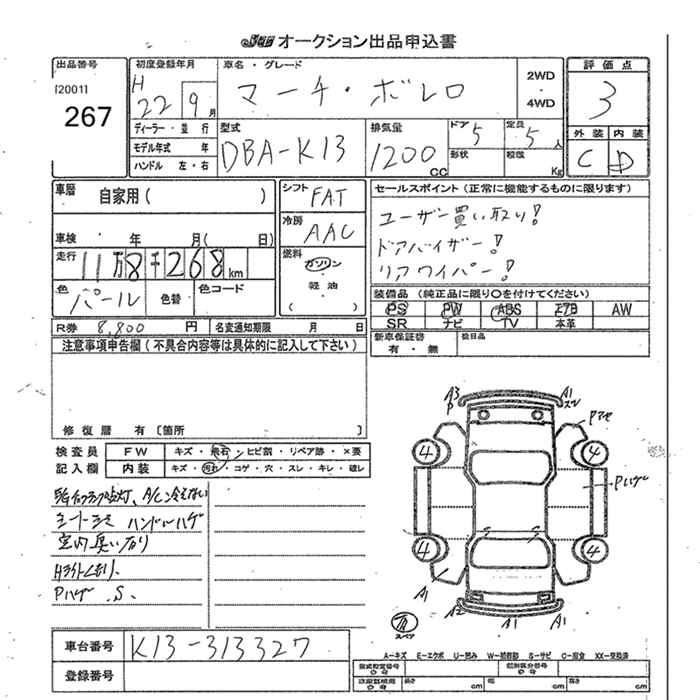 JU オークション出品申込書
出品番号
[20011
267
初度登録年月
H
22 9月
車名・グレード
マーチ・ボレロ
2WD
・
4WD
評価点
3
外装 内装
C D
ディーラー・並行
モデル年式 年
ハンドル 左・右
型式
DBA-K13
排気量
1200 CC
ドア 5
形状
定員 5 人
積載 Kg
車歴
自家用( )
車検 年 月( 日)
走行
11万8千268km
色
パール
色替
色コード
シフト
FAT
冷房
AAC
燃料
ガソリン
・
軽油
・
( )
セールスポイント(正常に機能するものに限ります)
ユーザー買い取り!
ドアバイザー!
リアワイパー!
装備品(純正品に限り○を付けてください)
PS PW ABS エアB AW
SR ナビ TV 本革
新車保証書
有・無
R券 8,800 円
名変通知期限 月 日
注意事項申告欄(不具合内容等は具体的に記入して下さい)
修復歴 有〔箇所 〕
検査員
記入欄
FW キズ・飛石・ヒビ割・リペア跡・×要
内装 キズ・汚れ・コゲ・穴・スレ・キレ・破レ
ハンドルハゲ
室内臭い有り
Pハゲ .S.
A3
P
A1
Pハゲ
4 4
4 4
A1
A2 A1 A1
スペア
車台番号 K13-313327
登録番号
A-キズ E-エクボ U-凹み W-補修跡 S-サビ C-腐食 XX-交換済
長さ cm 幅 cm 高さ cm